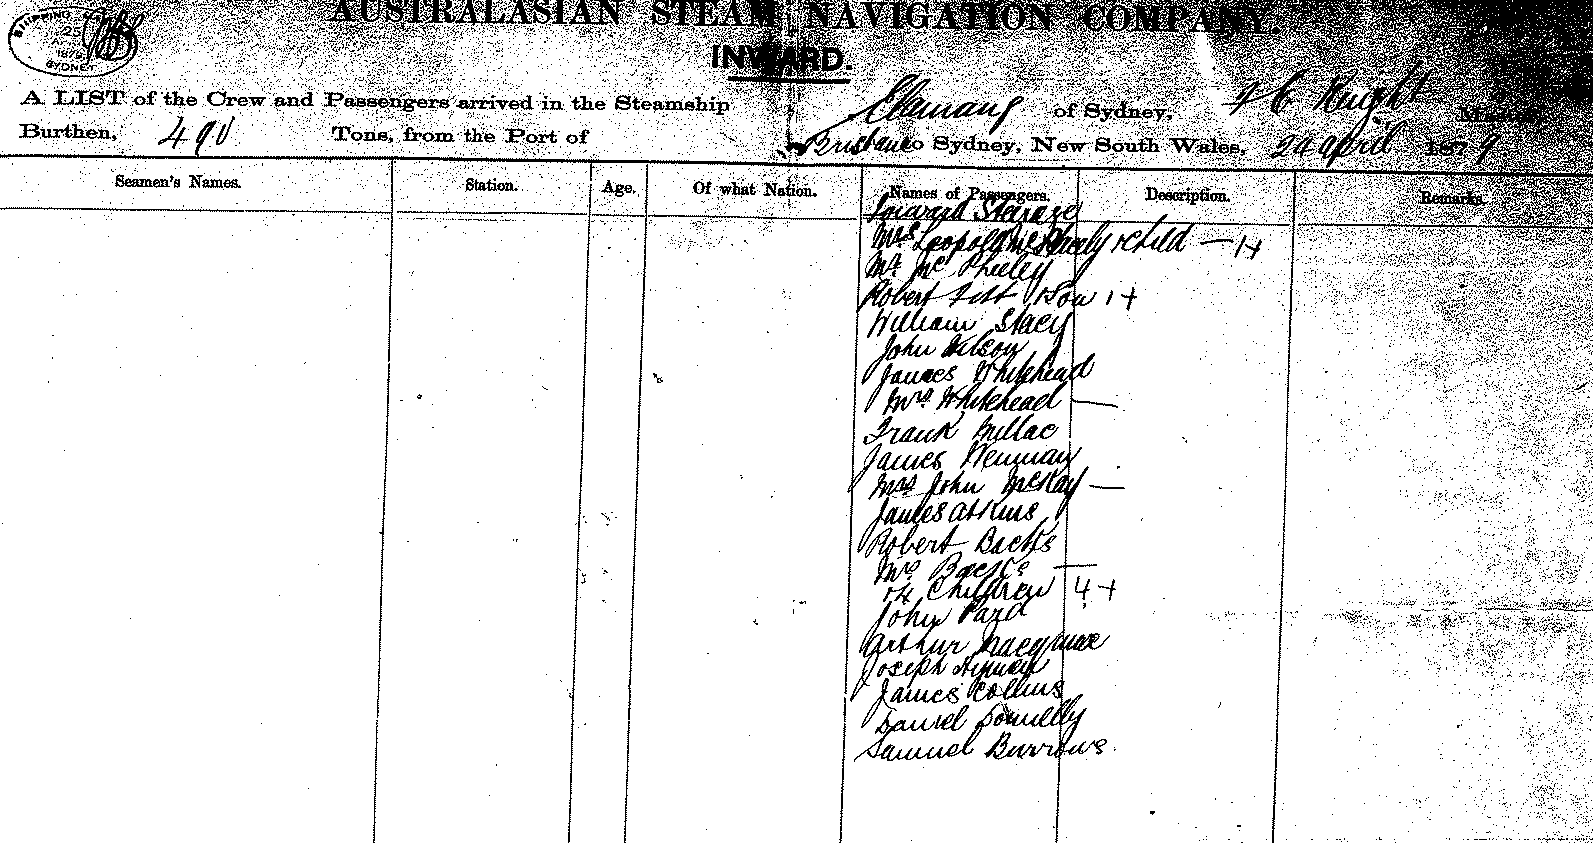 SHIPPING
25
1879
SYDNEY
AUSTRALASIAN STEAM NAVIGATION COMPANY.
INWARD.
A LIST of the Crew and Passengers arrived in the Steamship of Sydney, Knight Master,
Burthen, 490 Tons, from the Port of Brisbane to Sydney, New South Wales, 24 April 1879
Seamen's Names. Station. Age. Of what Nation. Names of Passengers. Description. Remarks.
Forward Steerage
Mrs Leopold child — 1+
Mr Mc Pheely
Robert Son 1+
William Stacy
John Wilson
James Whitehead
Mrs Whitehead —
Frank
James Newman
Mrs John McKay —
James Atkins
Robert Backs
Mrs Backs —
4 Children 4+
John
Arthur Macquarie
Joseph
James Collins
Daniel Donnelly
Samuel Burrows